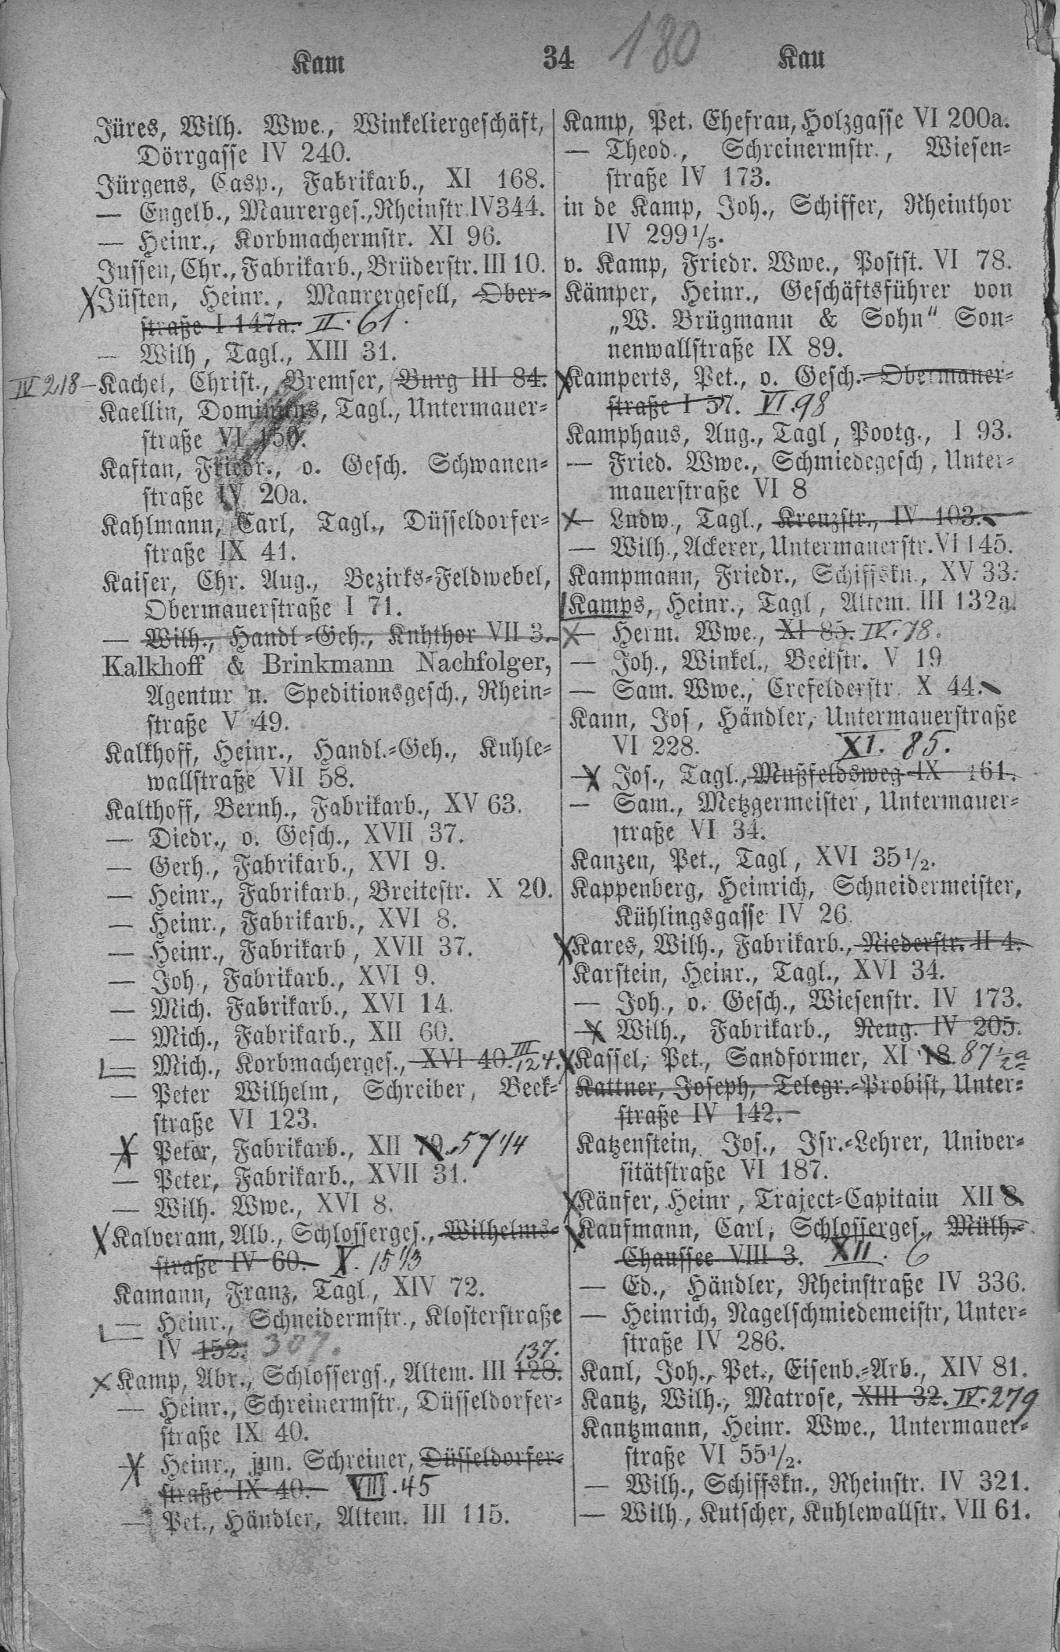 Kam 34 180 Kau
Jüres, Wilh. Wwe., Winkeliergeschäft,
Dörrgasse IV 240.
Jürgens, Casp., Fabrikarb., XI 168.
— Engelb., Maurerges., Rheinstr. IV 344.
— Heinr., Korbmachermstr. XI 96.
Jussen, Chr., Fabrikarb., Brüderstr. III 10.
X Jüsten, Heinr., Maurergesell, Ober-
straße I 147a. II. 61.
— Wilh, Tagl., XIII 31.
IV 218 — Kachel, Christ., Bremser, Burg III 84.
Kaellin, Dominikus, Tagl., Untermauer-
straße VI 150.
Kaftan, Friedr., o. Gesch. Schwanen-
straße IV 20a.
Kahlmann, Carl, Tagl., Düsseldorfer-
straße IX 41.
Kaiser, Chr. Aug., Bezirks-Feldwebel,
Obermauerstraße I 71.
— Wilh., Handl.-Geh., Kuhthor VII 3.
Kalkhoff & Brinkmann Nachfolger,
Agentur u. Speditionsgesch., Rhein-
straße V 49.
Kalkhoff, Heinr., Handl.-Geh., Kuhle-
wallstraße VII 58.
Kalthoff, Bernh., Fabrikarb., XV 63.
— Diedr., o. Gesch., XVII 37.
— Gerh., Fabrikarb., XVI 9.
— Heinr., Fabrikarb., Breitestr. X 20.
— Heinr., Fabrikarb., XVI 8.
— Heinr., Fabrikarb, XVII 37.
— Joh., Fabrikarb., XVI 9.
— Mich. Fabrikarb., XVI 14.
— Mich., Fabrikarb., XII 60.
— Mich., Korbmacherges., XVI 40. III 124.
— Peter Wilhelm, Schreiber, Beek-
straße VI 123.
X Peter, Fabrikarb., XII 57 1/4
— Peter, Fabrikarb., XVII 31.
— Wilh. Wwe., XVI 8.
X Kalveram, Alb., Schlosserges., Wilhelms-
straße IV 60. X. 15 1/3
Kamann, Franz, Tagl., XIV 72.
— Heinr., Schneidermstr., Klosterstraße
IV 152. 307.
X Kamp, Abr., Schlossergs., Altem. III 128. 137.
— Heinr., Schreinermstr., Düsseldorfer-
straße IX 40.
X Heinr., jun. Schreiner, Düsseldorfer-
straße IX 40. VIII. 45
— Pet., Händler, Altem. III 115.
Kamp, Pet. Ehefrau, Holzgasse VI 200a.
— Theod., Schreinermstr., Wiesen-
straße IV 173.
in de Kamp, Joh., Schiffer, Rheinthor
IV 299 1/5.
v. Kamp, Friedr. Wwe., Postst. VI 78.
Kämper, Heinr., Geschäftsführer von
„W. Brügmann & Sohn" Son-
nenwallstraße IX 89.
X Kamperts, Pet., o. Gesch. Obermauer-
straße I 57. VI. 98
Kamphaus, Aug., Tagl, Pootg., I 93.
— Fried. Wwe., Schmiedegesch, Unter-
mauerstraße VI 8
X — Ludw., Tagl., Kreuzstr., IV 103.
— Wilh., Ackerer, Untermauerstr. VI 145.
Kampmann, Friedr., Schiffskn., XV 33.
Kamps, Heinr., Tagl, Altem. III 132a.
X — Herm. Wwe., XI 85. IV. 78.
— Joh., Winkel., Beekstr. V 19
— Sam. Wwe., Crefelderstr. X 44.
Kann, Jos, Händler, Untermauerstraße
VI 228. XI. 85.
X Jos., Tagl., Mußfeldsweg IX 161.
— Sam., Metzgermeister, Untermauer-
straße VI 34.
Kanzen, Pet., Tagl, XVI 35 1/2.
Kappenberg, Heinrich, Schneidermeister,
Kühlingsgasse IV 26
X Kares, Wilh., Fabrikarb., Niederstr. II 4.
Karstein, Heinr., Tagl., XVI 34.
— Joh., o. Gesch., Wiesenstr. IV 173.
X Wilh., Fabrikarb., Reng. IV 205.
X Kassel, Pet., Sandformer, XI 18. 87 1/2a
Kattner, Joseph, Telegr.-Probist, Unter-
straße IV 142.
Katzenstein, Jos., Isr.-Lehrer, Univer-
sitätstraße VI 187.
X Käufer, Heinr, Traject-Capitain XII 8
X Kaufmann, Carl, Schlosserges., Mülh.-
Chaussee VIII 3. XII. 6
— Ed., Händler, Rheinstraße IV 336.
— Heinrich, Nagelschmiedemeistr, Unter-
straße IV 286.
Kaul, Joh., Pet., Eisenb.-Arb., XIV 81.
Kautz, Wilh., Matrose, XIII 32. IV. 279
Kautzmann, Heinr. Wwe., Untermauer-
straße VI 55 1/2.
— Wilh., Schiffskn., Rheinstr. IV 321.
— Wilh., Kutscher, Kuhlewallstr. VII 61.